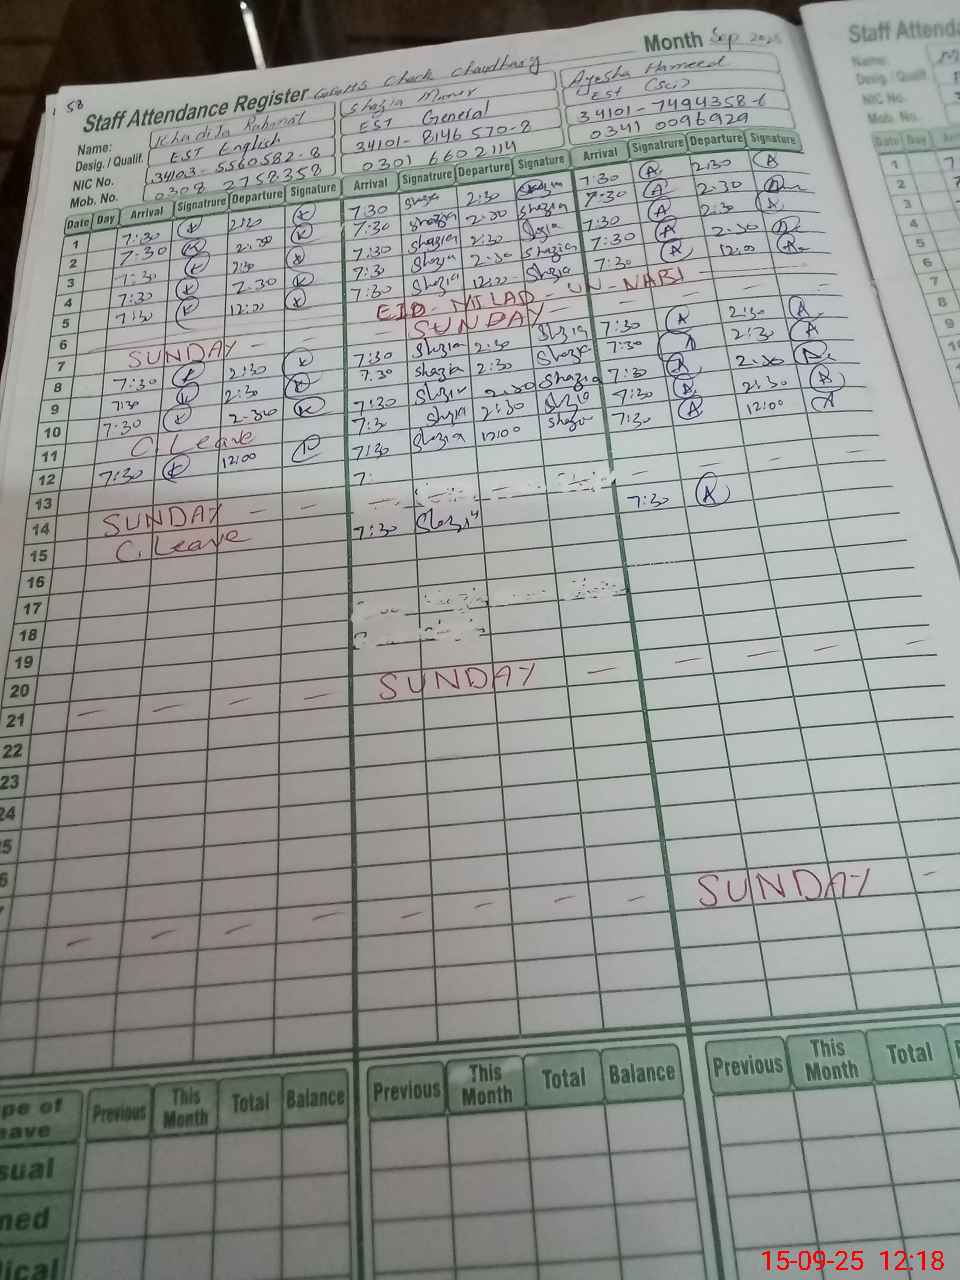 58
Month Sep 2025
Staff Attendance Register GGHSS Chack Chaudhary
Name: Khadija Rahmat Shazia Munir Ayesha Hameed
Desig. / Qualif. EST English EST General EST (Sci)
NIC No. 34103-5560582-8 34101-8146570-8 34101-7494358-6
Mob. No. 0308 2758358 0301 6602114 0341 0096929
Date Day Arrival Signatrure Departure Signature Arrival Signatrure Departure Signature Arrival Signatrure Departure Signature
1 7:30 K 2:30 K 7:30 Shazia 2:30 Shazia 7:30 A 2:30 A
2 7:30 K 2:30 K 7:30 Shazia 2:30 Shazia 7:30 A 2:30
3 7:30 K 2:30 K 7:30 Shazia 2:30 Shazia 7:30 A 2:30 A
4 7:30 K 2:30 K 7:30 Shazia 2:30 Shazia 7:30 A 2:30
5 7:30 K 12:00 K 7:30 Shazia 12:00 Shazia 7:30 A 12:00
6 EID - MILAD - UN - NABI
7 SUNDAY - - SUNDAY - - - - -
8 7:30 K 2:30 K 7:30 Shazia 2:30 Shazia 7:30 A 2:30 A
9 7:30 K 2:30 K 7:30 Shazia 2:30 Shazia 7:30 A 2:30 A
10 7:30 K 2:30 K 7:30 Shazia 2:30 Shazia 7:30 A 2:30
11 C. Leave 7:30 Shazia 2:30 Shazia 7:30 A 2:30 A
12 7:30 K 12:00 K 7:30 Shazia 12:00 Shazia 7:30 A 12:00 A
13 7:
14 SUNDAY - - - - - - - - - -
15 C. Leave 7:30 Shazia 7:30 A
16
17
18
19
20
21 - - - - SUNDAY - - - - -
22
23
24
5
6
- - - - - - - - SUNDAY -
Previous This Month Total Balance Previous This Month Total Balance Previous This Month Total
pe of
eave
sual
ned
ical
Staff Attenda
Name:
Desig. / Qualif.
NIC No.
Mob. No.
Date Day Ar
1
2
3
4
5
6
7
8
9
15-09-25 12:18